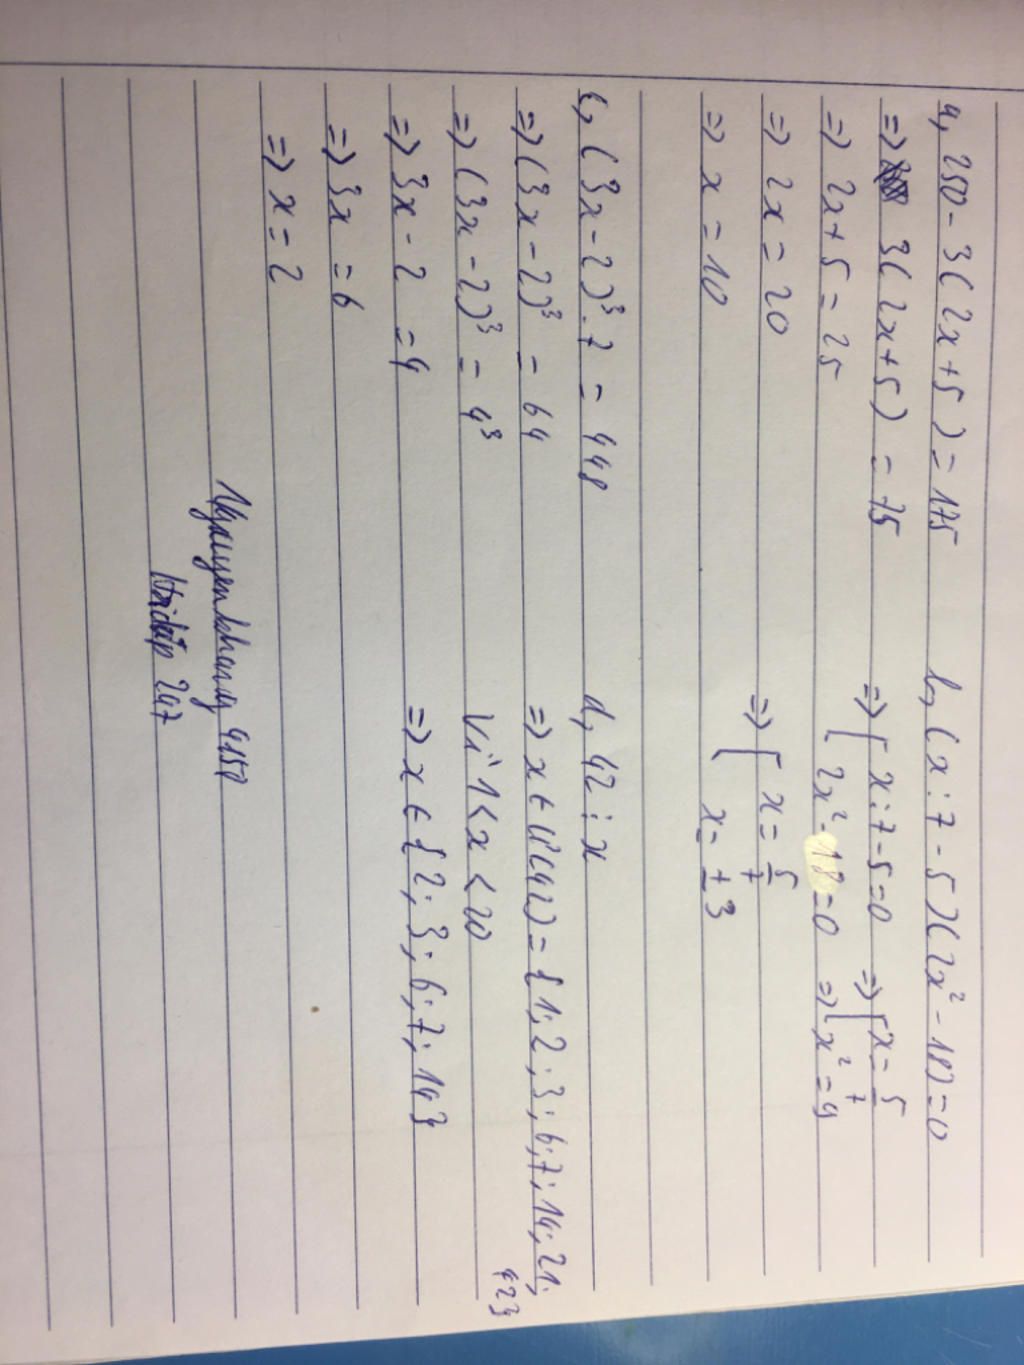 a, 250 - 3(2x+5) = 175
=> 3(2x+5) = 75
=> 2x+5 = 25
=> 2x = 20
=> x = 10
b, (x:7-5)(2x²-18)=0
=> [ x:7-5=0 => [ x=5/7
[ 2x²-18=0 => [ x²=9
=> [ x=5/7
[ x=±3
c, (3x-2)³.7 = 448
=> (3x-2)³ = 64
=> (3x-2)³ = 4³
=> 3x-2 = 4
=> 3x = 6
=> x = 2
d, 42 ⋮ x
=> x ∈ Ư(42) = {1; 2; 3; 6; 7; 14; 21;
42}
Vì 1<x<20
=> x ∈ {2; 3; 6; 7; 14}
Nguyenkhang 4150
Hoidap 247